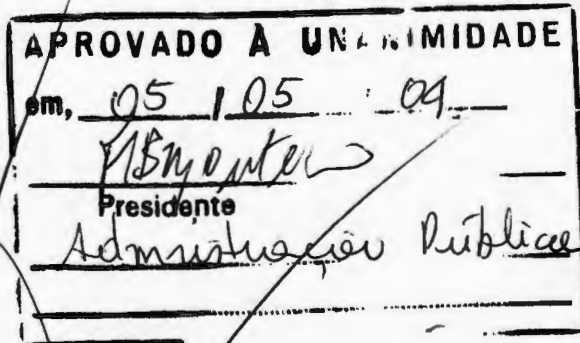 APROVADO À UNANIMIDADE
em, 05 / 05 : 09
Presidente
Administração Pública